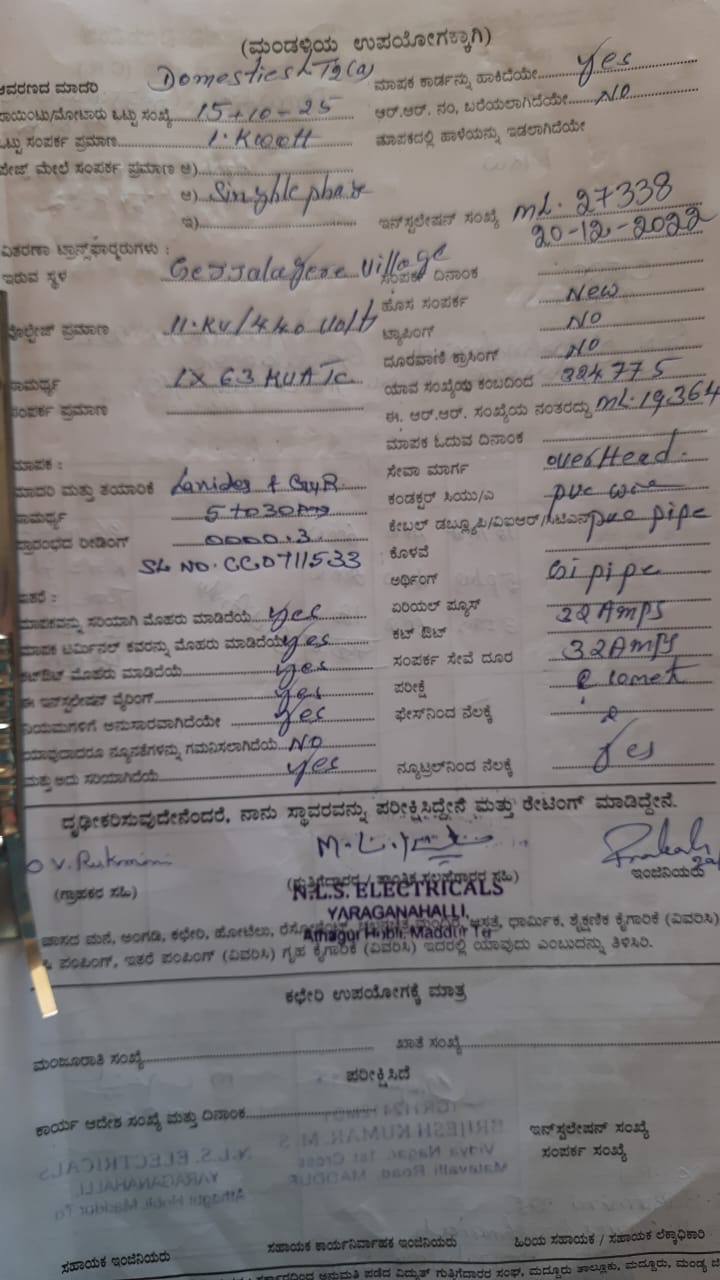 (ಮಂಡಳಿಯ ಉಪಯೋಗಕ್ಕಾಗಿ)
ಆವರಣದ ಮಾದರಿ Domestics LT2(a) ಮಾಪಕ ಕಾರ್ಡನ್ನು ಹಾಕಿದೆಯೇ Yes
ರಾಯಿಂಟು/ಮೋಟಾರು ಒಟ್ಟು ಸಂಖ್ಯೆ 15+10-25 ಆರ್.ಆರ್. ನಂ, ಬರೆಯಲಾಗಿದೆಯೇ NO
ಒಟ್ಟು ಸಂಪರ್ಕ ಪ್ರಮಾಣ ಮಾಪಕದಲ್ಲಿ ಹಾಳೆಯನ್ನು ಇಡಲಾಗಿದೆಯೇ
ಪೇಜ್ ಮೇಲೆ ಸಂಪರ್ಕ ಪ್ರಮಾಣ ಆ)
ಆ) Singhle phase
ಇ) ಇನ್‌ಸ್ಟಲೇಷನ್ ಸಂಖ್ಯೆ ML. 27338
20-12-2022
ವಿತರಣಾ ಟ್ರಾನ್ಸ್‌ಫಾರ್ಮರುಗಳು :
ಇರುವ ಸ್ಥಳ Gejjalagere Village ಸಂಪರ್ಕ ದಿನಾಂಕ
ಹೊಸ ಸಂಪರ್ಕ New
ವೋಲ್ಟೇಜ್ ಪ್ರಮಾಣ 11.KV/440 Volt ಟ್ಯಾಪಿಂಗ್ NO
ದೂರವಾಣಿ ಕ್ರಾಸಿಂಗ್ NO
ಸಾಮರ್ಥ್ಯ 1X63 KVA Tc ಯಾವ ಸಂಖ್ಯೆಯ ಕಂಬದಿಂದ 324775
ಸಂಪರ್ಕ ಪ್ರಮಾಣ ಈ. ಆರ್.ಆರ್. ಸಂಖ್ಯೆಯ ನಂತರದ್ದು ML.19364
ಮಾಪಕ ಓದುವ ದಿನಾಂಕ
ಮಾಪಕ : ಸೇವಾ ಮಾರ್ಗ overHead.
ಮಾದರಿ ಮತ್ತು ತಯಾರಿಕೆ ಕಂಡಕ್ಟರ್ ಸಿಯು/ಎ pvc wire
ಸಾಮರ್ಥ್ಯ 5 to 30A ಕೇಬಲ್ ಡಬ್ಲ್ಯೂಪಿ/ವಿಐಆರ್/ಸಿಟಿಎನ್ pvc pipe
ಪ್ರಾರಂಭದ ರೀಡಿಂಗ್ 0000.3 ಕೊಳವೆ
SL NO. CC0711533 ಅರ್ಥಿಂಗ್ Gi pipe
ಇತರೆ : ಏರಿಯಲ್ ಫ್ಯೂಸ್ 32 Amps
ಮಾಪಕವನ್ನು ಸರಿಯಾಗಿ ಮೊಹರು ಮಾಡಿದೆಯೆ Yes ಕಟ್ ಔಟ್ 32 Amps
ಮಾಪಕ ಟರ್ಮಿನಲ್ ಕವರನ್ನು ಮೊಹರು ಮಾಡಿದೆಯೆ Yes
ಕಟ್‌ಔಟ್ ಮೊಹರು ಮಾಡಿದೆಯೆ Yes ಸಂಪರ್ಕ ಸೇವೆ ದೂರ
ಈ ಇನ್‌ಸ್ಟಲೇಷನ್ ವೈರಿಂಗ್ Yes ಪರೀಕ್ಷೆ
ನಿಯಮಗಳಿಗೆ ಅನುಸಾರವಾಗಿದೆಯೇ Yes ಫೇಸ್‌ನಿಂದ ನೆಲಕ್ಕೆ
ಯಾವುದಾದರೂ ನ್ಯೂನತೆಗಳನ್ನು ಗಮನಿಸಲಾಗಿದೆಯೆ NO
ಮತ್ತು ಅದು ಸರಿಯಾಗಿದೆಯೆ Yes ನ್ಯೂಟ್ರಲ್‌ನಿಂದ ನೆಲಕ್ಕೆ Yes
ದೃಢೀಕರಿಸುವುದೇನೆಂದರೆ, ನಾನು ಸ್ಥಾವರವನ್ನು ಪರೀಕ್ಷಿಸಿದ್ದೇನೆ ಮತ್ತು ರೇಟಿಂಗ್ ಮಾಡಿದ್ದೇನೆ.
V. Rukmini Prakash
(ಗ್ರಾಹಕರ ಸಹಿ) (ಗುತ್ತಿಗೆದಾರರ / ತಾಂತ್ರಿಕ ಸಲಹೆಗಾರರ ಸಹಿ) ಇಂಜಿನಿಯರು
N.L.S. ELECTRICALS
YARAGANAHALLI,
Athagur Hobli, Maddur Tq
ವಾಸದ ಮನೆ, ಅಂಗಡಿ, ಕಛೇರಿ, ಹೋಟೆಲು, ಆಸ್ಪತ್ರೆ, ಧಾರ್ಮಿಕ, ಶೈಕ್ಷಣಿಕ ಕೈಗಾರಿಕೆ (ವಿವರಿಸಿ)
ಪಂಪಿಂಗ್, ಇತರೆ ಪಂಪಿಂಗ್ (ವಿವರಿಸಿ) ಗೃಹ ಕೈಗಾರಿಕೆ (ವಿವರಿಸಿ) ಇದರಲ್ಲಿ ಯಾವುದು ಎಂಬುದನ್ನು ತಿಳಿಸಿರಿ.
ಕಛೇರಿ ಉಪಯೋಗಕ್ಕೆ ಮಾತ್ರ
ಮಂಜೂರಾತಿ ಸಂಖ್ಯೆ ಖಾತೆ ಸಂಖ್ಯೆ
ಪರೀಕ್ಷಿಸಿದೆ
ಕಾರ್ಯ ಆದೇಶ ಸಂಖ್ಯೆ ಮತ್ತು ದಿನಾಂಕ ಇನ್‌ಸ್ಟಲೇಷನ್ ಸಂಖ್ಯೆ
ಸಂಪರ್ಕ ಸಂಖ್ಯೆ
ಸಹಾಯಕ ಇಂಜಿನಿಯರು ಸಹಾಯಕ ಕಾರ್ಯನಿರ್ವಾಹಕ ಇಂಜಿನಿಯರು ಹಿರಿಯ ಸಹಾಯಕ / ಸಹಾಯಕ ಲೆಕ್ಕಾಧಿಕಾರಿ
ಸರ್ಕಾರದಿಂದ ಅನುಮತಿ ಪಡೆದ ವಿದ್ಯುತ್ ಗುತ್ತಿಗೆದಾರರ ಸಂಘ, ಮದ್ದೂರು ತಾಲ್ಲೂಕು, ಮದ್ದೂರು, ಮಂಡ್ಯ